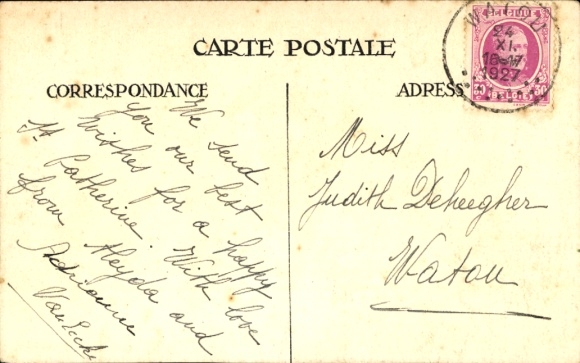 CARTE POSTALE
CORRESPONDANCE
We send
you our best
wishes for a happy
St Catherine. With love
from Aleyda and
Adrienne
Van Eecke
ADRESS
Miss
Judith Deheegher
Watou
WATOU
24
XI.
16-17
1927
30
30